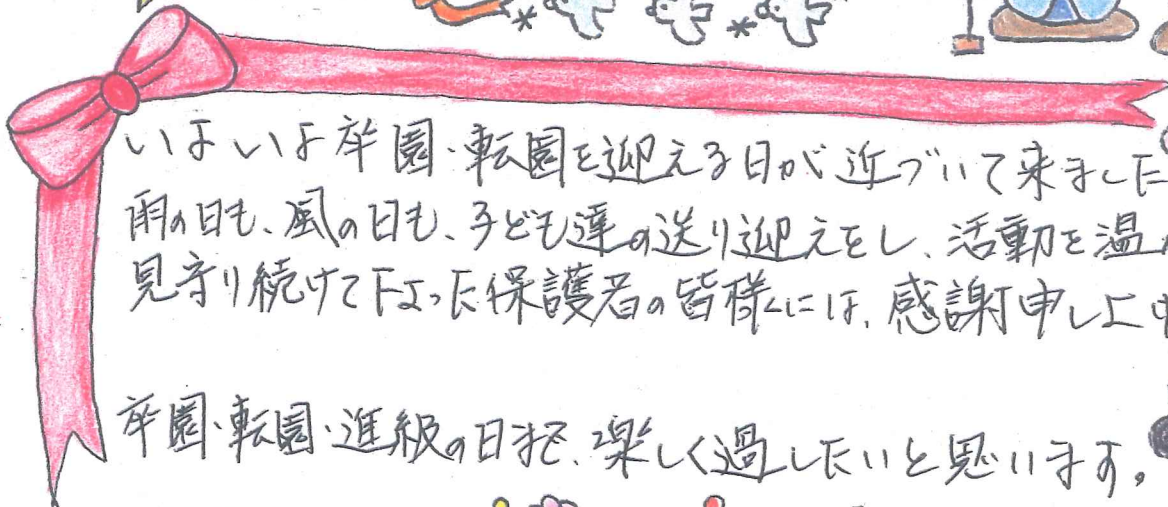 いよいよ卒園・転園を迎える日が近づいて来ました
雨の日も、風の日も、子ども達の送り迎えをし、活動を温
見守り続けて下さった保護者の皆様には、感謝申し上
卒園・転園・進級の日まで、楽しく過したいと思います。